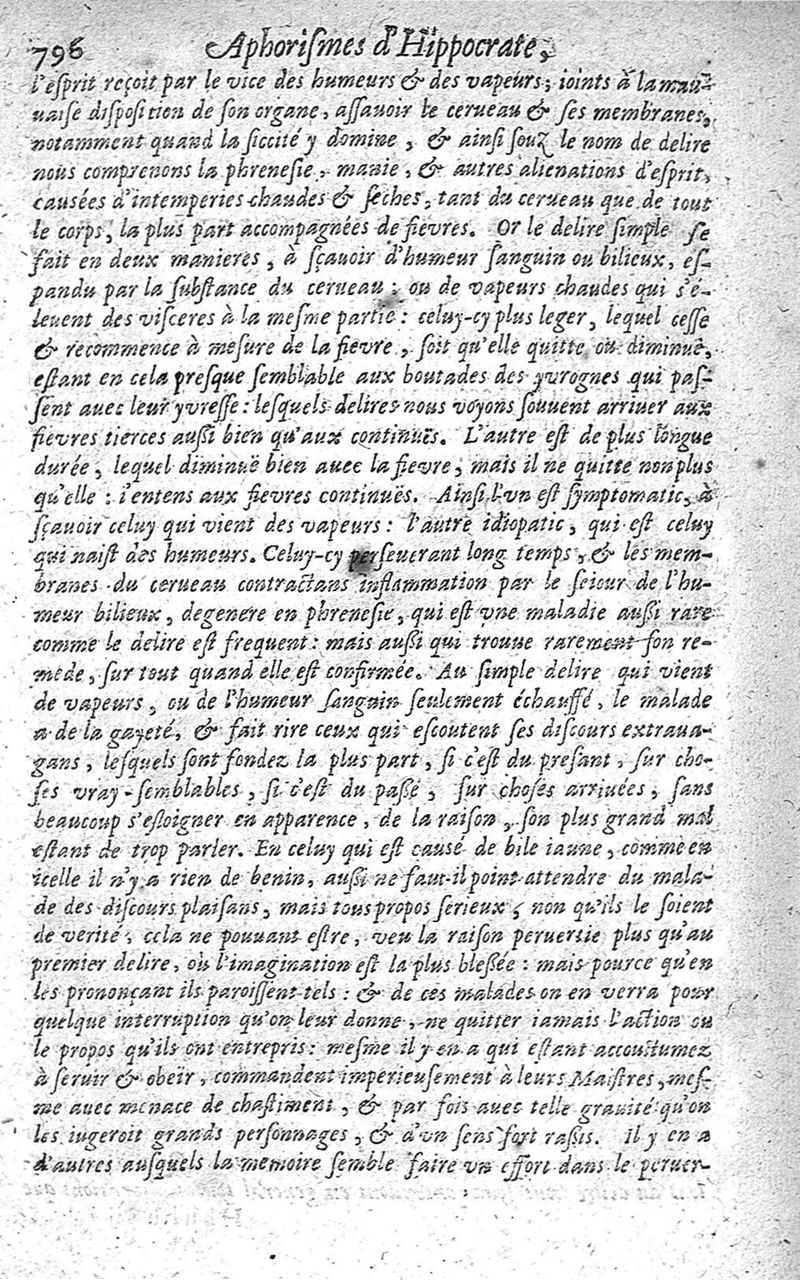 796 Aphorismes d'Hippocrate,
l'esprit reçoit par le vice des humeurs & des vapeurs; ioints à la mau-
uaise disposition de son organe, assauoir le cerueau & ses membranes,
notamment quand la siccité y domine, & ainsi souz le nom de delire
nous comprenons la phrenesie, manie, & autres alienations d'esprit,
causées d'intemperies chaudes & seches, tant du cerueau que de tout
le corps, la plus part accompagnées de fievres. Or le delire simple se
fait en deux manieres, à sçauoir d'humeur sanguin ou bilieux, es-
pandu par la substance du cerueau: ou de vapeurs chaudes qui s'e-
leuent des visceres à la mesme partie: celuy-cy plus leger, lequel cesse
& recommence à mesure de la fievre, soit qu'elle quitte ou diminuë,
estant en cela presque semblable aux boutades des yvrognes qui pas-
sent auec leur yvresse: lesquels delires nous voyons souuent arriuer aux
fievres tierces aussi bien qu'aux continuës. L'autre est de plus longue
durée, lequel diminuë bien auec la fievre, mais il ne quitte non plus
qu'elle: i'entens aux fievres continuës. Ainsi l'vn est symptomatic, à
sçauoir celuy qui vient des vapeurs: l'autre idiopatic, qui est celuy
qui naist des humeurs. Celuy-cy perseuerant long temps, & les mem-
branes du cerueau contractans inflammation par le seiour de l'hu-
meur bilieux, degenere en phrenesie, qui est vne maladie aussi rare
comme le delire est frequent: mais aussi qui trouue rarement son re-
mede, sur tout quand elle est confirmée. Au simple delire qui vient
de vapeurs, ou de l'humeur sanguin seulement échauffé, le malade
a de la gayeté, & fait rire ceux qui escoutent ses discours extraua-
gans, lesquels sont fondez la plus part, si c'est du present, sur cho-
ses vray-semblables, si c'est du passé, sur choses arriuées, sans
beaucoup s'esloigner en apparence, de la raison, son plus grand mal
estant de trop parler. En celuy qui est causé de bile iaune, comme en
icelle il n'y a rien de benin, aussi ne faut-il point attendre du mala-
de des discours plaisans, mais tous propos serieux; non qu'ils le soient
de verité, cela ne pouuant estre, veu la raison peruertie plus qu'au
premier delire, où l'imagination est la plus blessée: mais pource qu'en
les prononçant ils paroissent tels: & de ces malades on en verra pour
quelque interruption qu'on leur donne, ne quitter iamais l'action ou
le propos qu'ils ont entrepris: mesme il y en a qui estant accoustumez
à seruir & obeïr, commandent imperieusement à leurs Maistres, mes-
me auec menace de chastiment, & par fois auec telle grauité qu'on
les iugeroit grands personnages, & d'vn sens fort rassis. Il y en a
d'autres ausquels la memoire semble faire vn effort dans le peruer-